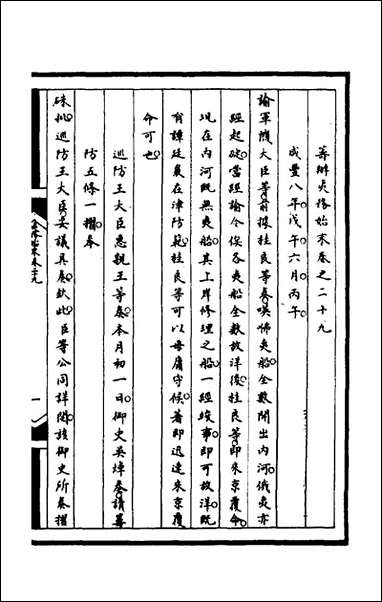 籌辦夷務始末卷之二十九
咸豐八年戊午六月丙午
諭軍機大臣等前據桂良等奏嘆咈夷船全數開出內河俄夷亦
經起碇當經諭令俟各夷船全數放洋後桂良等即來京覆命
現在內河既無夷船其上岸修理之船一經竣事即可放洋既
有譚廷襄在津防範桂良等可以毋庸守候著即迅速來京覆
命可也
巡防王大臣惠親王等奏本月初一日御史吳焯奏請籌
防五條一摺奉
硃批巡防王大臣妥議具奏欽此臣等公同詳閱該御史所奏摺
夷務始末卷二十九
一